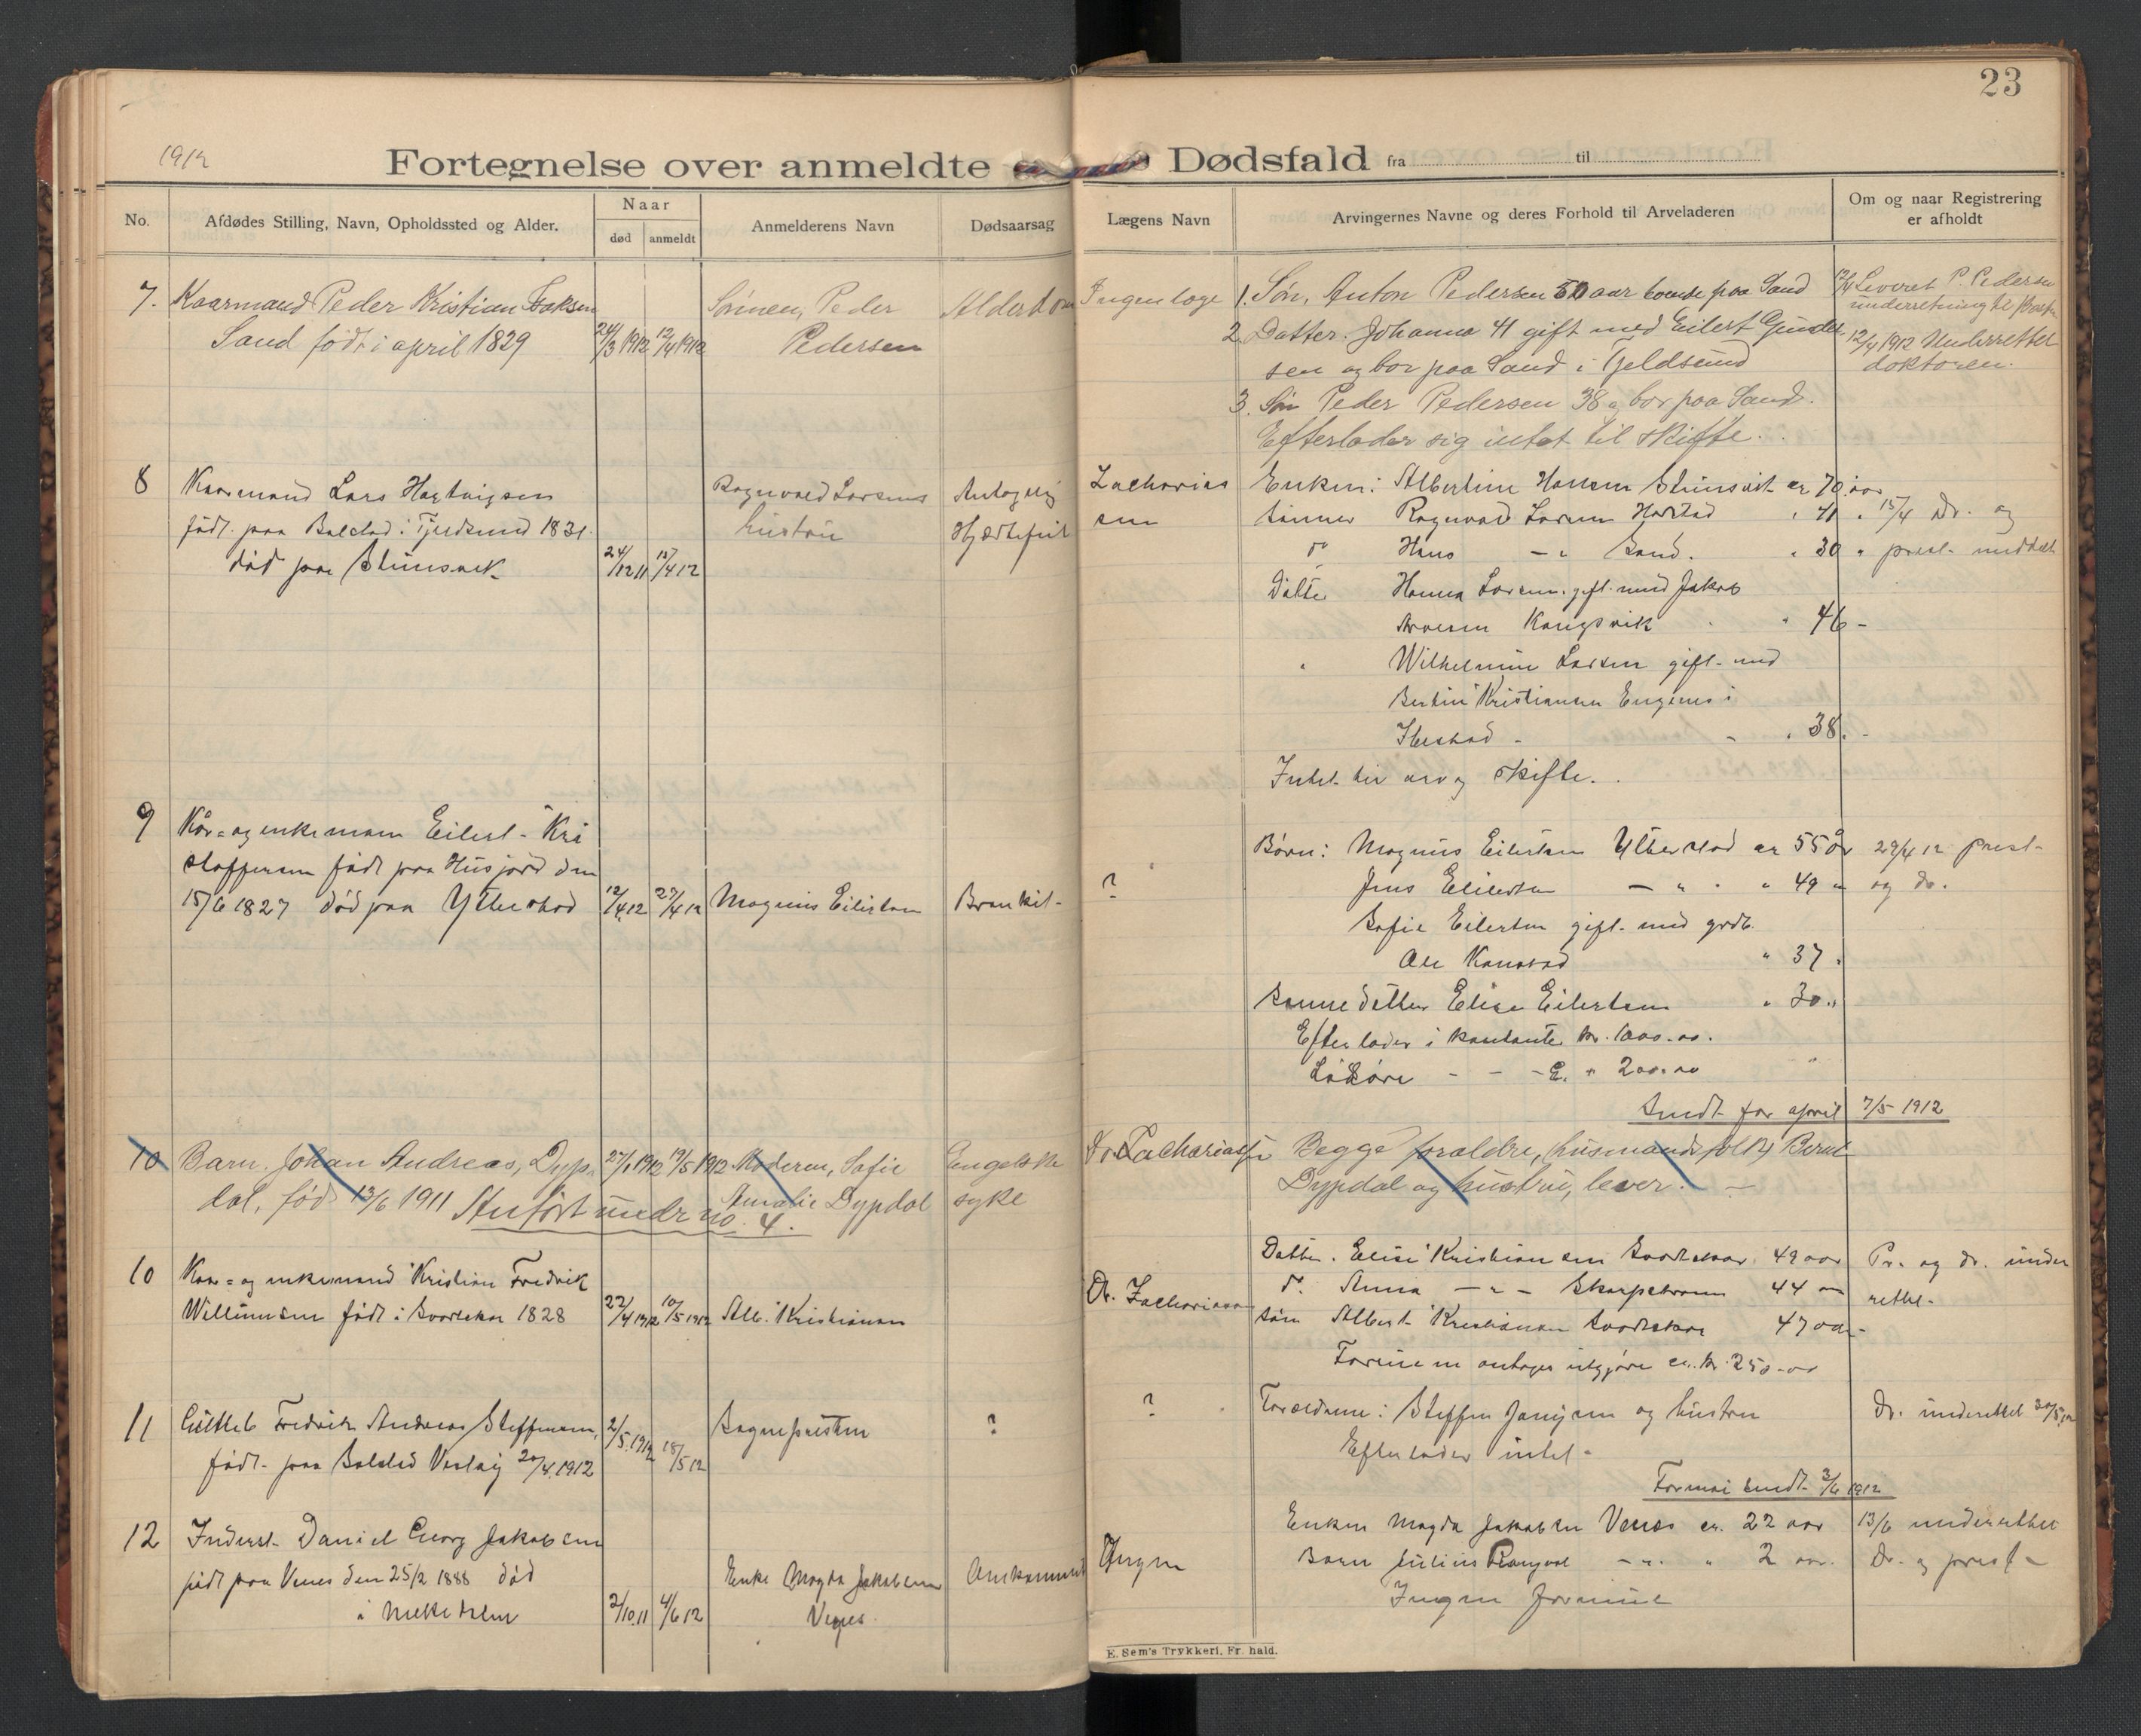 23
1912
Fortegnelse over anmeldte Dødsfald fra til
No.
Afdødes Stilling, Navn, Opholdssted og Alder.
Naar
død
anmeldt
Anmelderens Navn
Dødsaarsag
Lægens Navn
Arvingernes Navne og deres Forhold til Arveladeren
Om og naar Registrering
er afholdt
7. Kaarmand Peder Kristian
Sand født i april 1829
24/3 1912
12/4 1912
Sønnen, Peder
Pedersen
Alderdom
Ingen læge
1. Søn, Anton Pedersen 50 aar boende paa Sand
2 Datter. Johanna 41 gift med Eilert
sen og bor paa Sand i Tjeldsund
3. Søn Peder Pedersen 38 a bor paa Sand.
Efterlader sig intet til skifte.
12/4 Leveret P. Pedersen
underretning til
12/4 1912 Underrettet
doktoren.
8
Kaarmand Lars Hartvigsen
født paa Balstad i Tjeldsund 1831.
død paa
24/12 11
15/4 12
Ragnvald Larsens
hustru
Antagelig
Hjertefeil
Zacharias
sen
Enken: Albertine Hansen er 70 aar
Sønner Ragnvald Larsen Harstad " 41 "
do Hans — " Sand. " 30 "
Datter Hanna Larsen gift med Jakob
Kongsvik " 46 -
" Wilhelmine Larsen gift med
Kristiansen Engenes i
Ibestad - " 38. -
Intet til arv og skifte.
15/4 Dr. og
prest
9
Kår= og enkemann Eilert Kri
stoffersen født paa Husjord den
15/6 1827 død paa Ytterstad
12/4 12
27/4 12
Magnus Eilertsen
?
Børn: Magnus Eilertsen Ytterstad er 55 år
Jens Eilertsen — " " 49 "
Sofie Eilertsen gift med grdb.
Ole Kanstad " 37 "
Sønnedatter Elise Eilertsen " 30 "
Efterlader i kontante kr. 1000.00.
Løsøre - - - " 200.00
29/4 12 prest
og dr.
Sendt for april 7/5 1912
10 Barn. Johan Andreas, Dyp
dal, født 13/6 1911 Anført under no. 4.
27/1 1912
19/5 1912
Moderen, Sofie
Amalie Dypdal
Engelske
syke
Dr. Zachariassen
Begge forældre, husmandsfolk Bernt
Dypdal og hustru, lever. —
10
Kaar= og enkemand Kristian Fredrik
Willumsen født i 1828
22/4 1912
10/5 1912
Alb. Kristiansen
Dr. Zachariassen
Datter. Elise Kristiansen 49 aar
do. Anna — " — 44 "
Søn Albert Kristiansen 47 aar
Formuen antages utgjøre ca. kr. 250.00
Pr. og dr. under
rettet
11
Fredrik Andreas Steffensen,
født paa 20/4 1912
2/5 1912
18/5 12
Sogneprsten
?
?
Forældrene: Steffen og hustru
Efterlader intet
Dr. underettet 20/5 12
For mai sendt 3/6 1912
12
Inderst. Daniel Georg Jakobsen
født paa Venes den 25/2 1888 død
i
2/10 11
4/6 12
Enke Magda Jakobsen
Venes.
Omkommet
Ingen
Enken Magda Jakobsen Venes er. 22 aar
Barn Julius — " " 2 aar.
Ingen formue
13/6 underrettet
Dr. og prest
E. Sem's Trykkeri, Fr. hald.